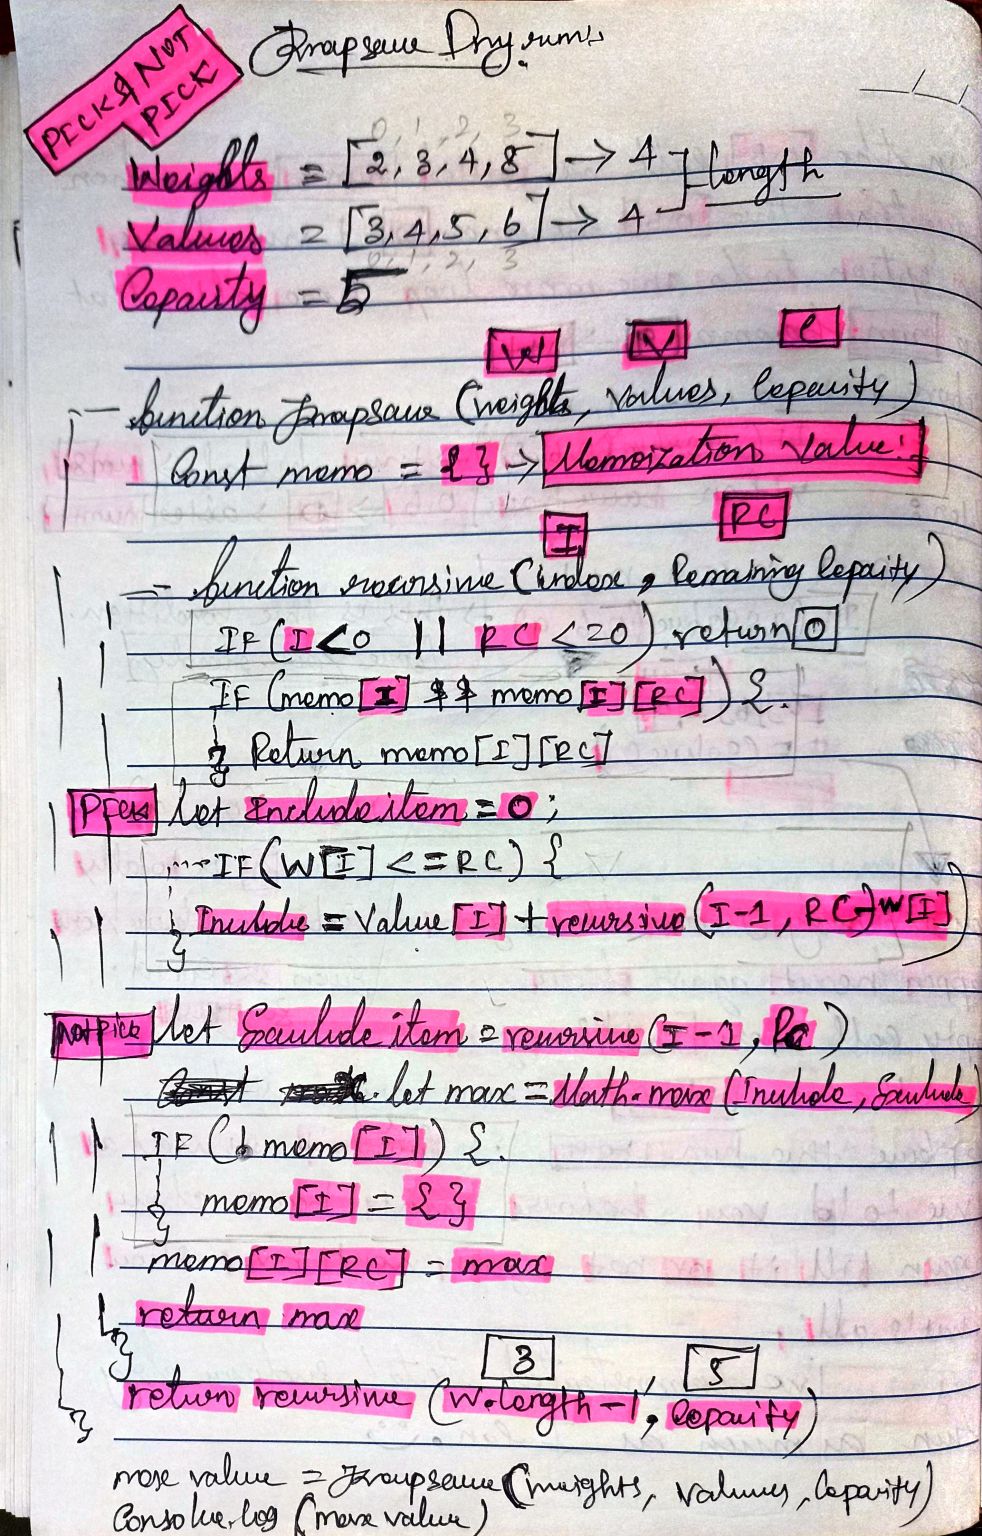 PICK & NOT PICK
Knapsack Dry runs
0, 1, 2, 3
Weights = [2, 3, 4, 8] → 4
length
Values = [3, 4, 5, 6] → 4
0, 1, 2, 3
Capacity = 5
W V C
function Knapsack (weights, values, Capacity)
Const memo = { } → Memoization Value!
I RC
function recursive (index, Remaining Capacity)
IF (I < 0 || RC <= 0) return 0
IF (memo [I] && memo [I] [RC]) {
} Return memo [I] [RC]
Pick let Include item = 0;
IF (W[I] <= RC) {
Include = Value [I] + recursive (I-1, RC - W[I])
}
not pick let Exclude item = recursive (I-1, RC)
let max = Math.max (Include, Exclude)
IF (! memo [I]) {
memo [I] = { }
}
memo [I] [RC] = max
return max
}
3 , 5
return recursive (W.length-1, Capacity)
}
max value = Knapsack (weights, values, Capacity)
Console.log (max value)